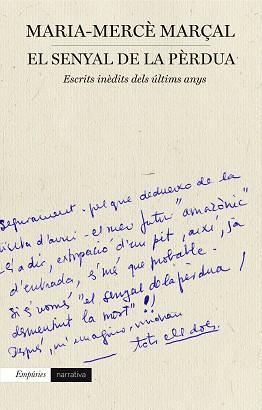 MARIA-MERCÈ MARÇAL
EL SENYAL DE LA PÈRDUA
Escrits inèdits dels últims anys
Segurament - pel que dedueixo de la
visita d'avui - el meu futur "amazònic"
- És a dir, extirpació d'un pit, així, ja
d'entrada, s'més que probable.
Si és només "el senyal de la pèrdua /
desmentint la mort"!!
Després, m'imagino, vindran
— tots ells dos.
Empúries
narrativa